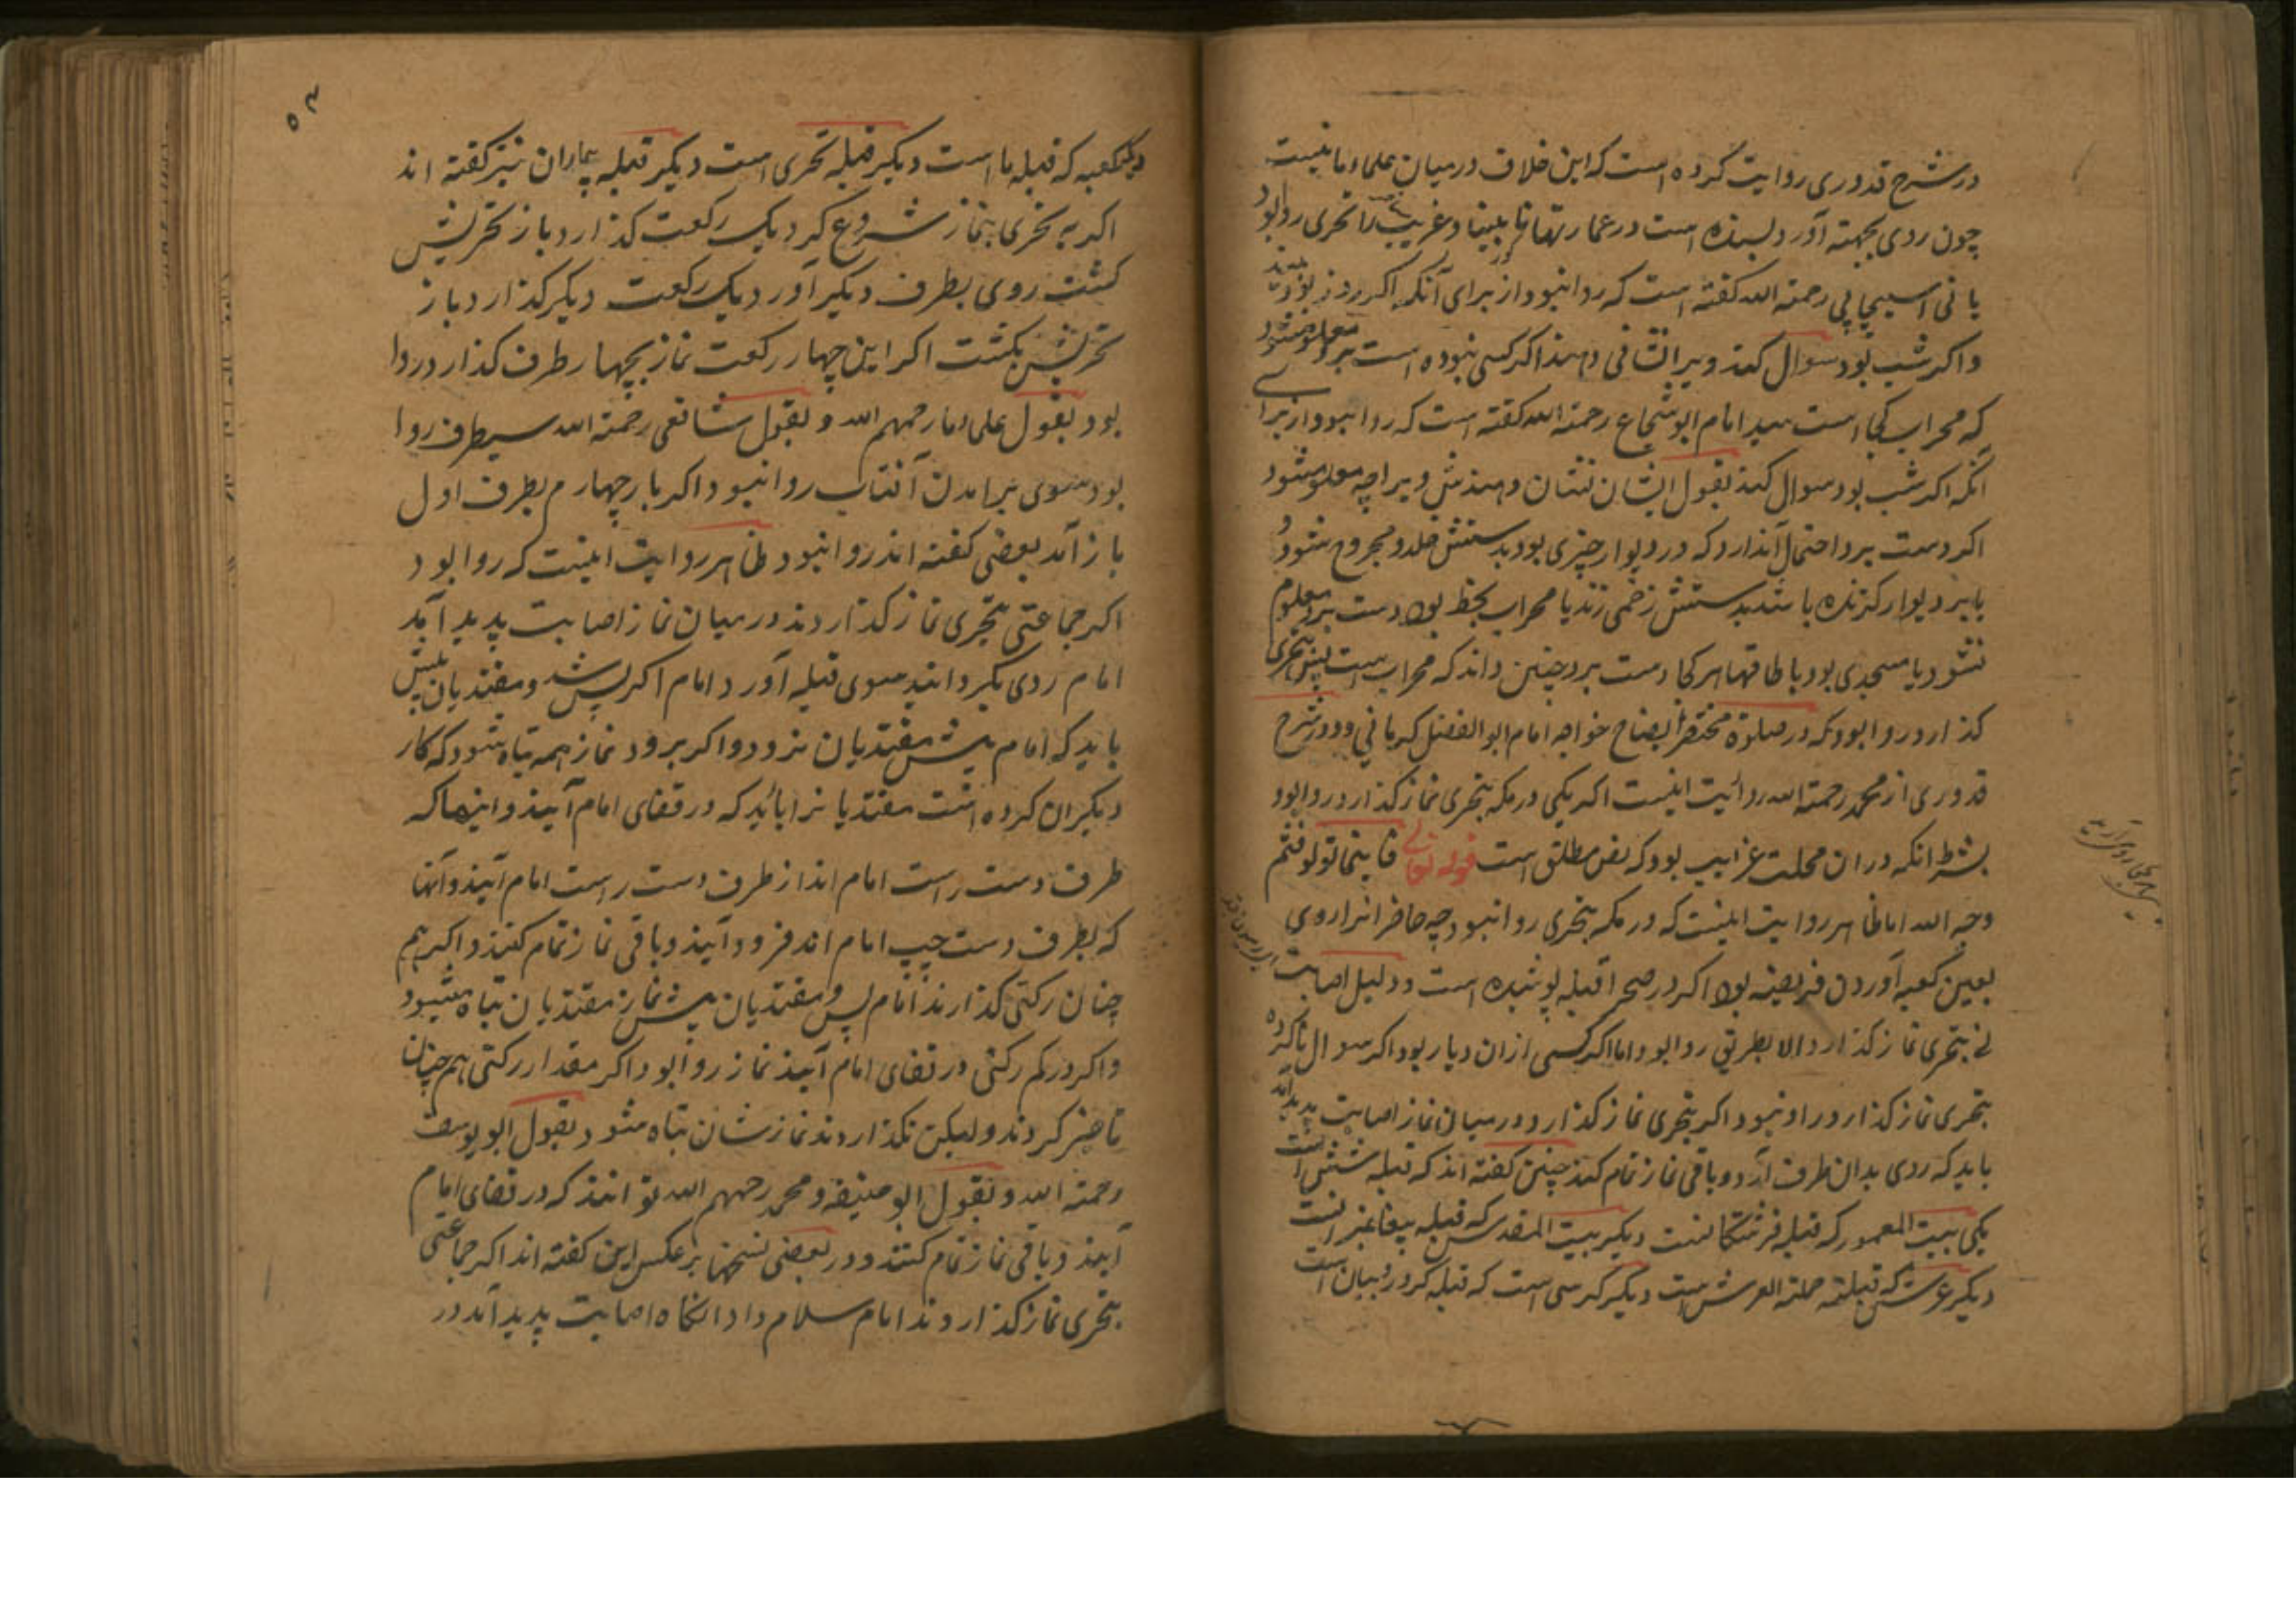 در شرح قدوری روایت کرده است که این خلاف در میان علماء ما نیست
چون روی بجهته آورد بسنده است در عمارتها نابینا و غریب را تحری روا بود
اسبیجابی رحمة الله کفته است که روا نبود از برای آنکه اکر روز بود
و اکر شب بود سوال کند ویرا نشانی دهند اکر کسی نبوده است معلوم شود
که محراب کجا است سید امام ابو شجاع رحمة الله کفته است که روا نبود از برای
آنکه اکر شب بود سوال کند بقول ایشان نشان دهندش ویرا چه معلوم شود
اکر دست برد احتمال آن دارد که در دیوار چیزی بود بدستش خلد و مجروح شود
یا بر دیوار کزنده باشد بدستش زخمی زند یا محراب بخط بود دست برد معلوم
نشود یا مسجدی بود با طاقها هر کجا دست برد چنین داند که محراب است پس بتحری
کذارد روا بود که در صلوة مختصر ایضاح خواجه امام ابو الفضل کرمانی و در شرح
قدوری از محمد رحمة الله روایت اینست اکر یکی در مکه بتحری نماز کذارد روا بود
بشرط آنکه در ان محلت غرایب بود که نص مطلق است قوله تعالی فاینما تولوا فثم
وجه الله اما ظاهر روایت اینست که در مکه بتحری روا نبود چه حاضرانرا روی
بعین کعبه آوردن فریضه بود اکر در صحرا قبله پوشیده است و دلیل اصابت
نی بتحری نماز کذارد الا بطریق روا بود اما اکر کسی ازان دیار بود اکر سوال ناکرده
بتحری نماز کذارد روا نبود اکر بتحری نماز کذارد و در میان نماز اصابت پدید آمد
باید که روی بدان طرف آرد و باقی نماز تمام کند چنین کفته اند که قبله شش است
یکی بیت المعمور که قبله فرشتکانست دیکر بیت المقدس که قبله پیغامبرانست
دیکر عرش که قبله حملة العرش است دیکر کرسی است که قبله کروبیان است
دیکر کعبه که قبله ما است دیکر قبله تحری است دیکر قبله بیماران نیز کفته اند
اکر به تحری بنماز شروع کرد یک رکعت کذارد باز تحریش
کشت روی بطرف دیکر آورد یک رکعت دیکر کذارد باز
تحریش بکشت اکر این چهار رکعت نماز بچهار طرف کذارد روا
بود بقول علماء ما رحمهم الله و بقول شافعی رحمة الله سیطرف روا
بود سوی برامدن آفتاب روا نبود اکر بار چهارم بطرف اول
باز آمد بعضی کفته اند روا نبود ظاهر روایت اینست که روا بود
اکر جماعتی بتحری نماز کذاردند در میان نماز اصابت پدید آمد
امام روی بکرداند سوی قبله آورد امام اکر پس شد و مقتدیان پیش
باید که امام پیش مقتدیان نرود و اکر برود نماز همه تباه شود که کار
دیکران کرده است مقتدیانرا باید که در قفای امام آیند و اینها که
طرف دست راست امام اند از طرف دست راست امام آیند و آنها
که بطرف دست چپ امام اند فرود آیند و باقی نماز تمام کنند و اکر هم
چنان رکنی کذارند امام پس و مقتدیان پیش نماز مقتدیان تباه شود
و اکر در کم رکنی در قفای امام آیند نماز روا بود اکر مقدار رکنی هم چنان
تاخیر کردند ولیکن نکذاردند نماز شان تباه شود بقول ابو یوسف
رحمة الله و بقول ابو حنیفه و محمد رحمهم الله توانند که در قفای امام
آیند و باقی نماز تمام کنند و در بعضی نسخها بر عکس این کفته اند اکر جماعتی
بتحری نماز کذاردند امام سلام داد انکاه اصابت پدید آمد در